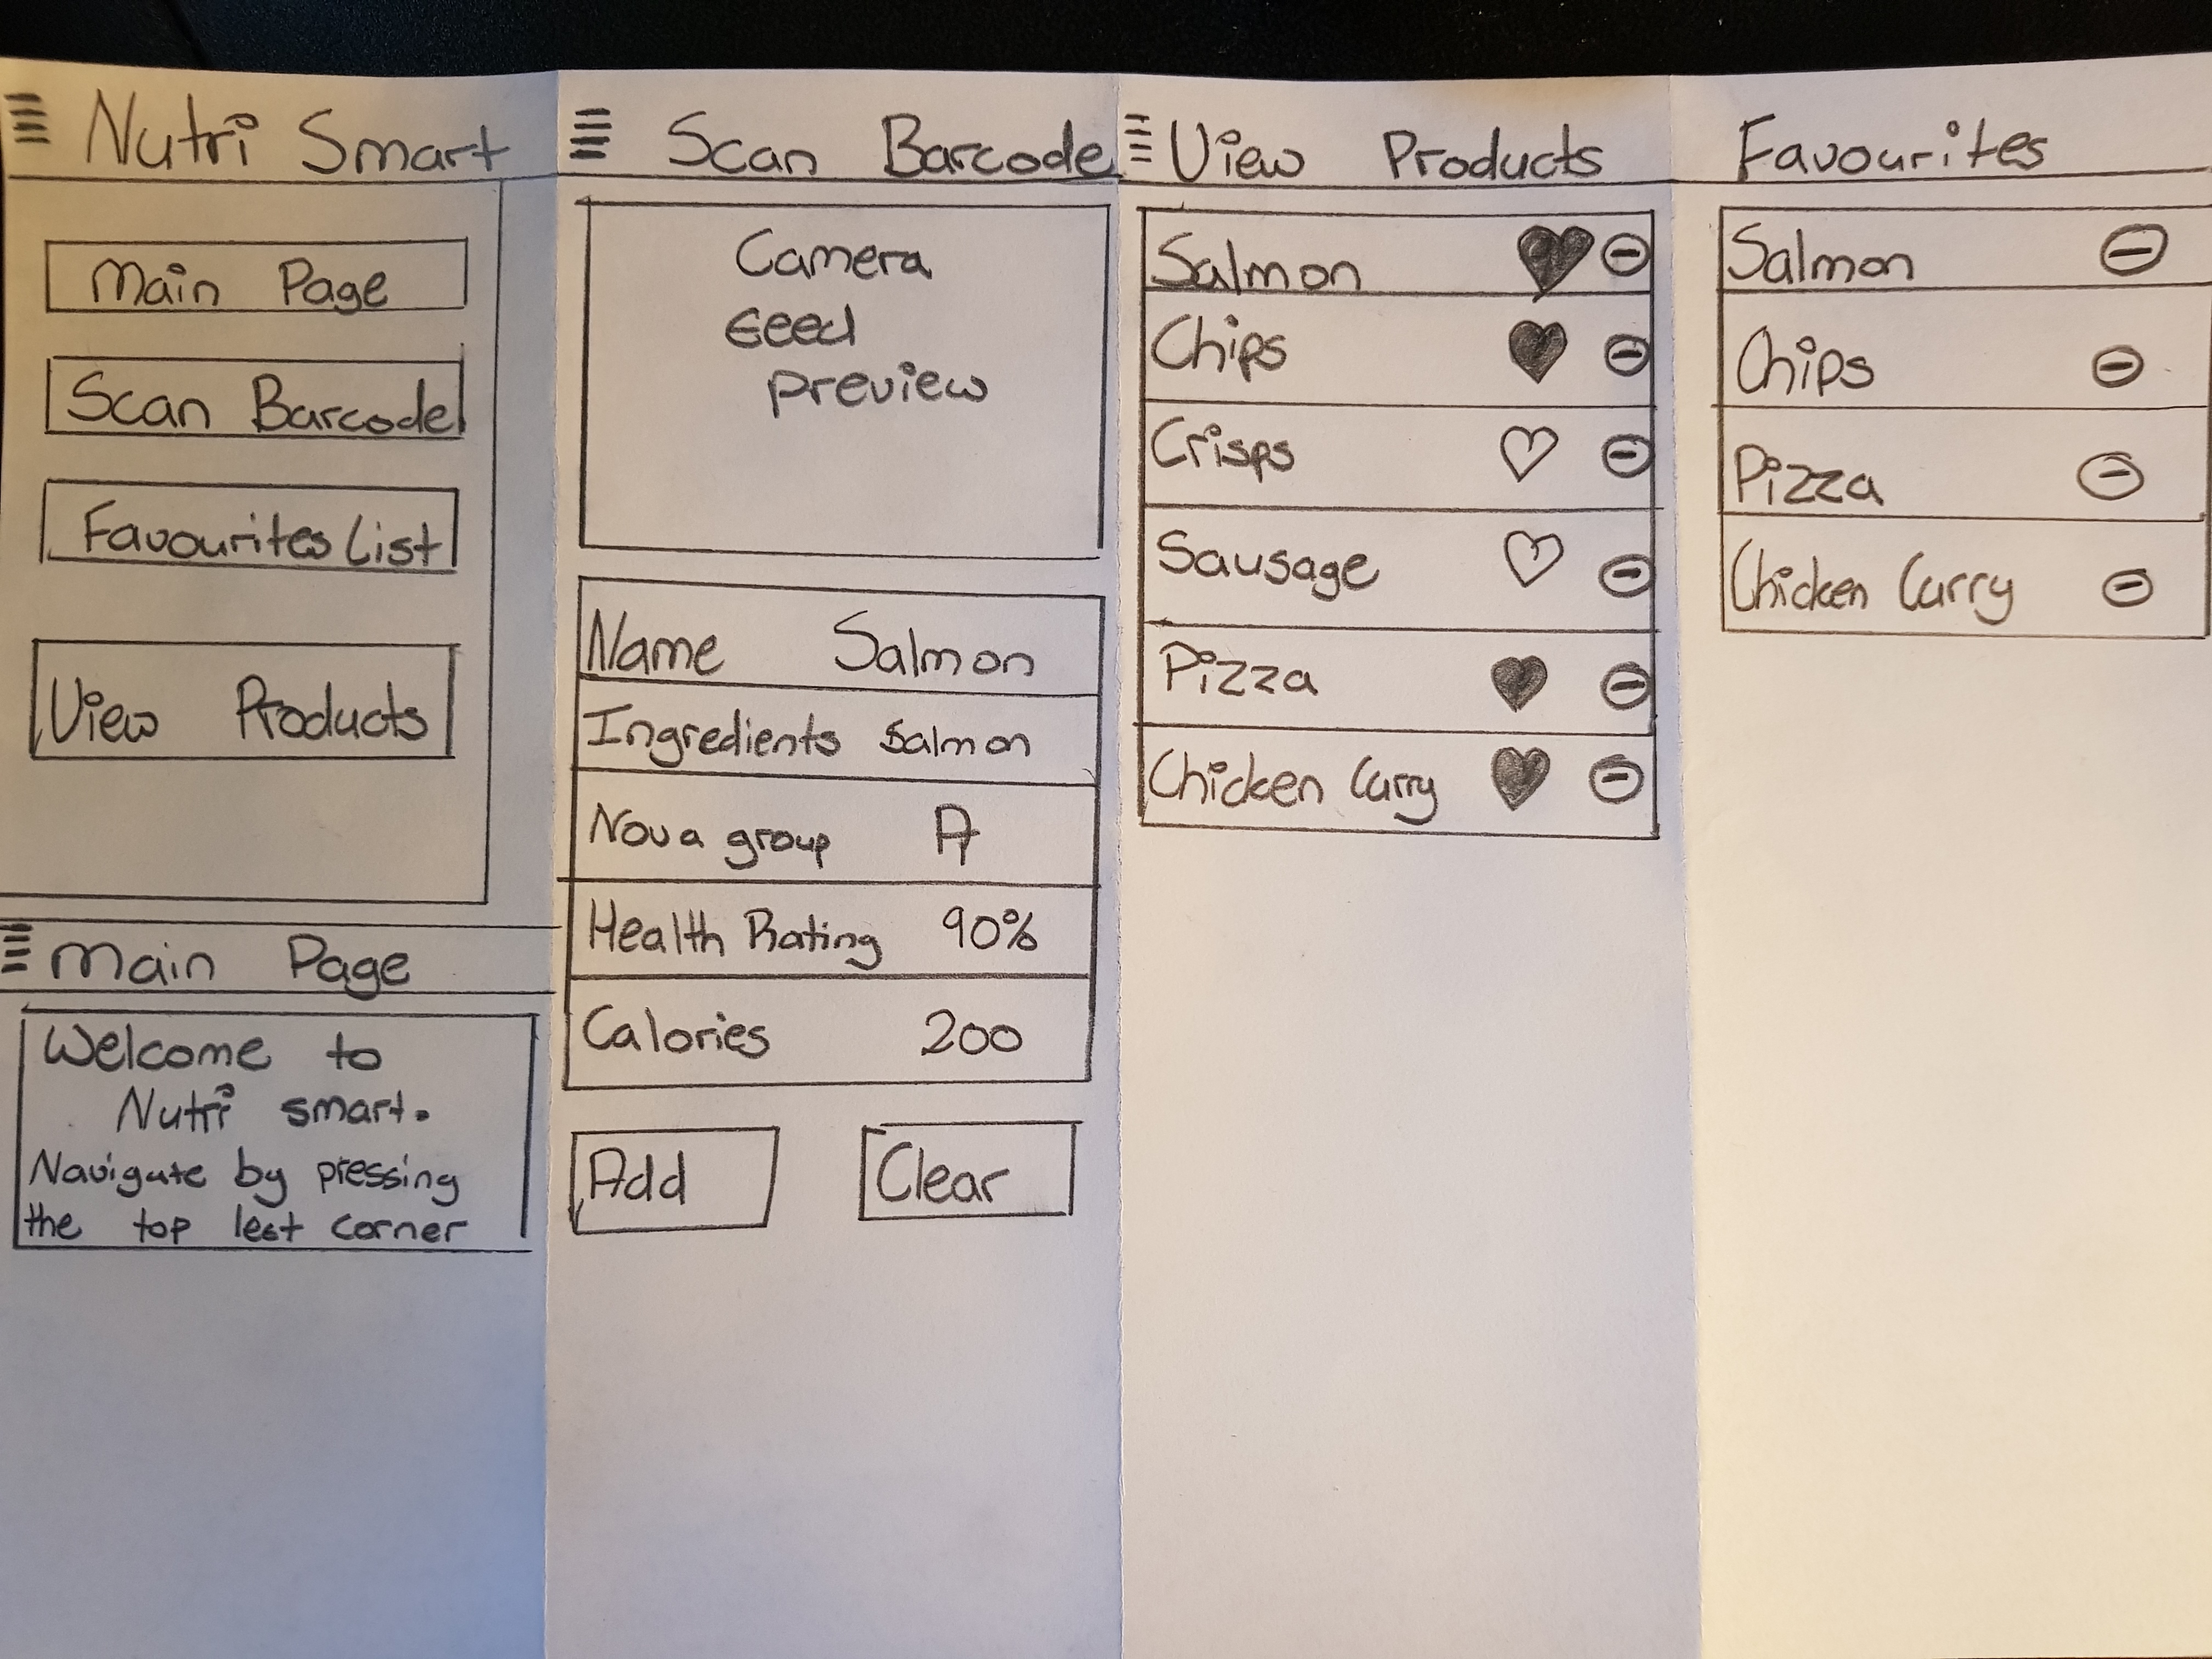 Nutri Smart
Main Page
Scan Barcode
Favourites List
View Products
Main Page
Welcome to
Nutri smart.
Navigate by pressing
the top left corner
Scan Barcode
Camera
feed
preview
Name Salmon
Ingredients Salmon
Nova group A
Health Rating 90%
Calories 200
Add Clear
View Products
Salmon
Chips
Crisps
Sausage
Pizza
Chicken Curry
Favourites
Salmon
Chips
Pizza
Chicken Curry